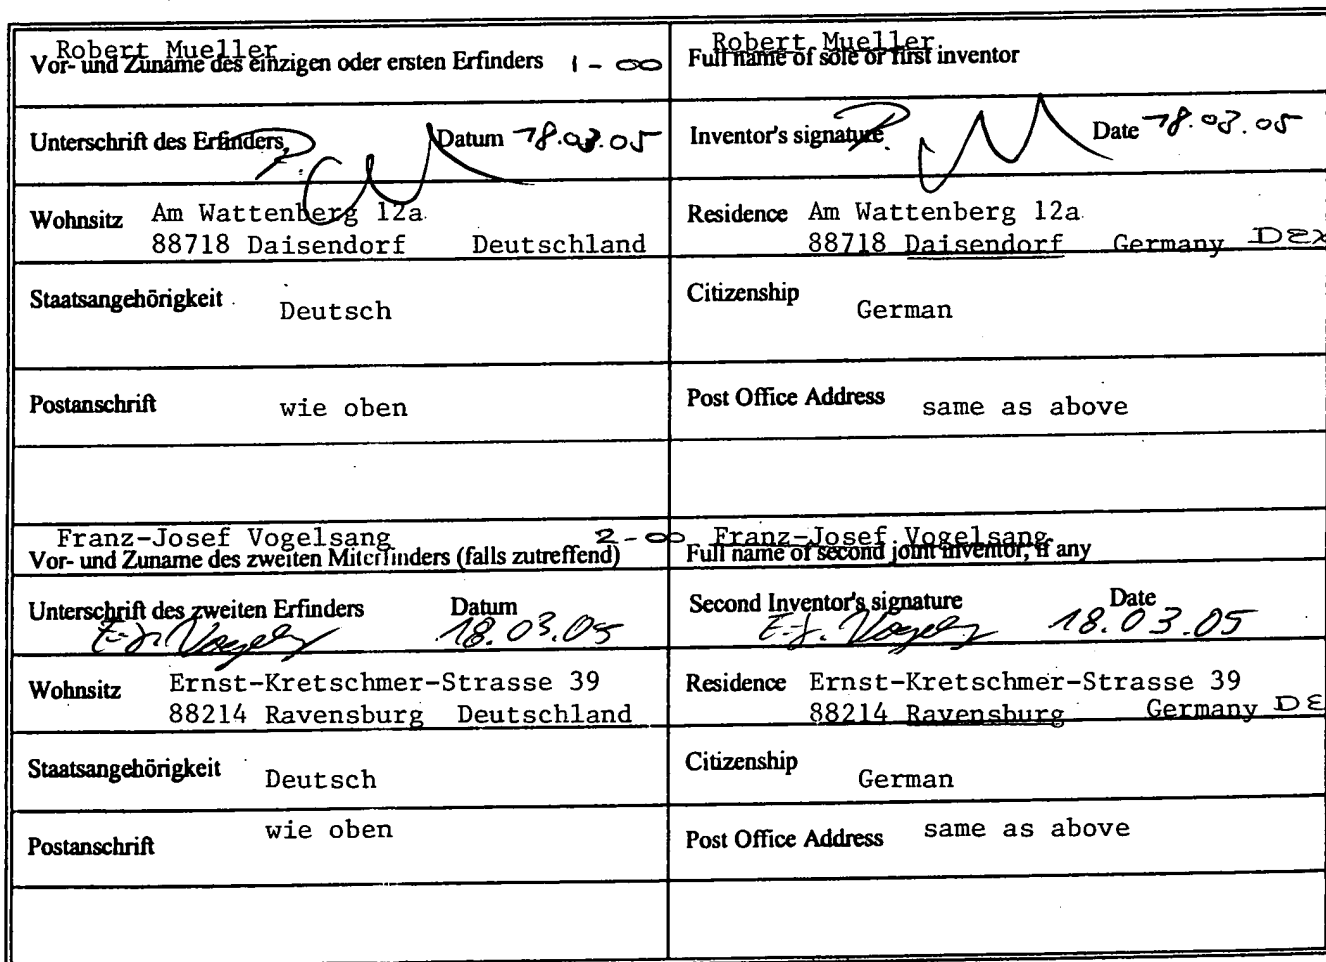 Robert Mueller
Vor- und Zuname des einzigen oder ersten Erfinders 1-00
Robert Mueller
Full name of sole or first inventor
Unterschrift des Erfinders Datum 18.03.05
Inventor's signature Date 18.03.05
Wohnsitz Am Wattenberg 12a
88718 Daisendorf Deutschland
Residence Am Wattenberg 12a
88718 Daisendorf Germany DEX
Staatsangehörigkeit Deutsch
Citizenship German
Postanschrift wie oben
Post Office Address same as above
Franz-Josef Vogelsang 2-00
Vor- und Zuname des zweiten Miterfinders (falls zutreffend)
Franz-Josef Vogelsang
Full name of second joint inventor, if any
Unterschrift des zweiten Erfinders Datum
18.03.05
Second Inventor's signature Date
18.03.05
Wohnsitz Ernst-Kretschmer-Strasse 39
88214 Ravensburg Deutschland
Residence Ernst-Kretschmer-Strasse 39
88214 Ravensburg Germany DE
Staatsangehörigkeit Deutsch
Citizenship German
wie oben
Postanschrift
Post Office Address same as above